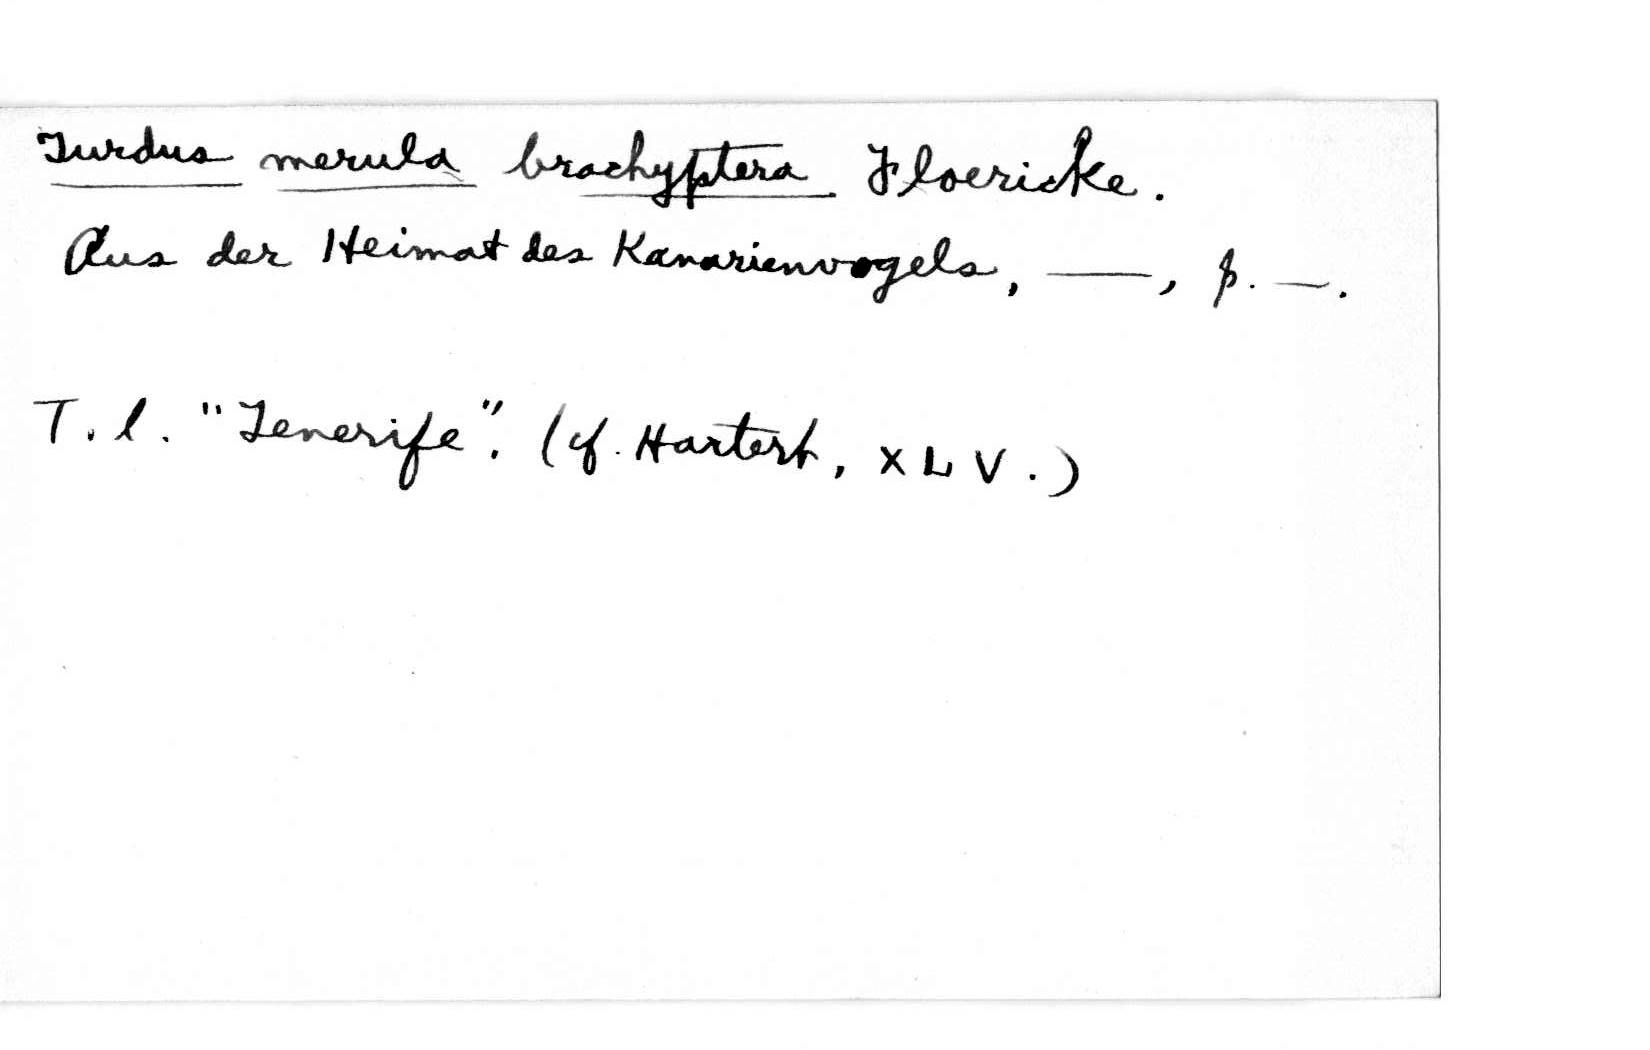 Turdus merula brachyptera Floericke.
Aus der Heimat des Kanarienvogels, —, p. —.
T. l. "Tenerife". (cf. Hartert, XLV.)